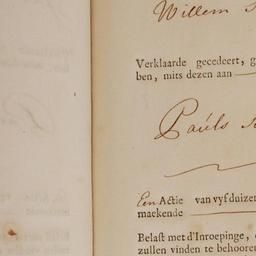 Willem
Verklaarde gecedeert, g
ben, mits dezen aan
Paúls
Een Actie van vyf duizen
maekende
Belast met d'Inroepinge,
zullen vinden te behooren